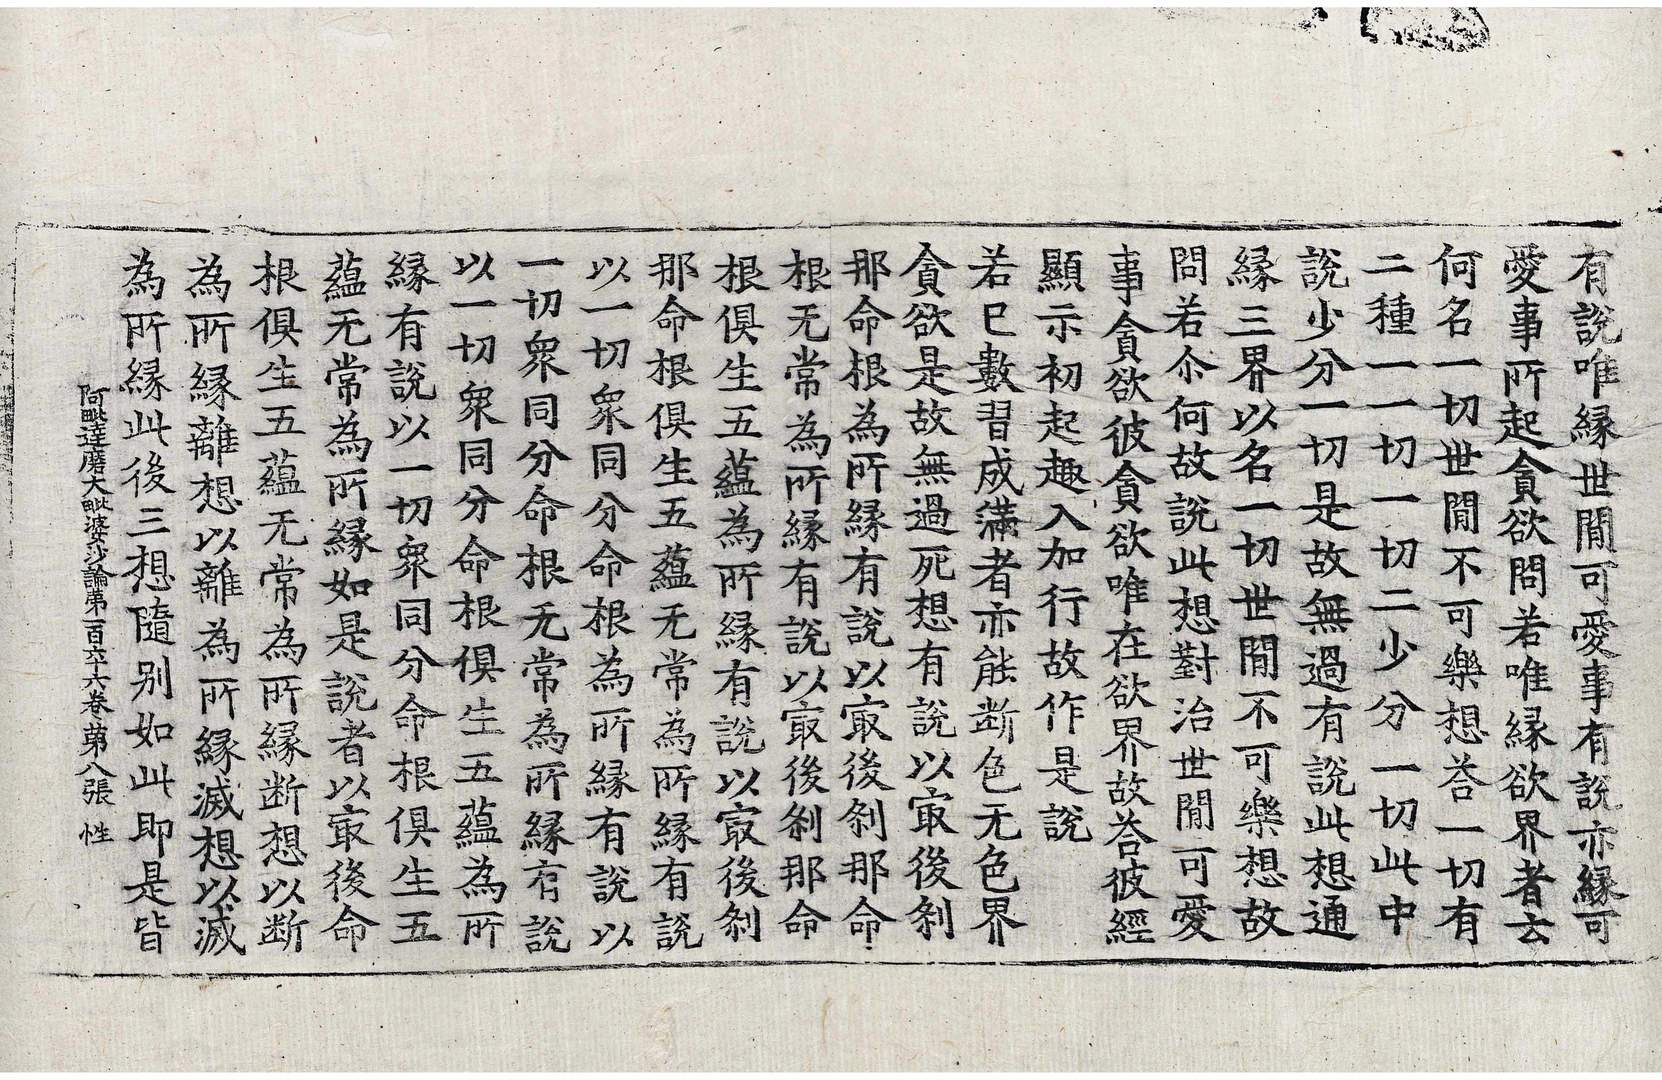 有説唯縁世閒可愛事有説亦縁可
愛事所起貪欲問若唯縁欲界者云
何名一切世閒不可樂想荅一切有
二種一一切一切二少分一切此中
說少分一切是故無過有説此想通
縁三界以名一切世閒不可樂想故
問若尒何故説此想對治世閒可愛
事貪欲彼貪欲唯在欲界故荅彼經
顯示初起趣入加行故作是説
若已數習成滿者亦能断色无色界
貪欲是故無過死想有説以㝡後刹
那命根為所縁有説以㝡後刹那命
根无常為所縁有説以㝡後刹那命
根俱生五蘊為所縁有説以㝡後刹
那命根俱生五蘊无常為所縁有説
以一切衆同分命根為所縁有説以
一切衆同分命根无常為所縁有説
以一切衆同分命根俱生五蘊為所
縁有説以一切衆同分命根俱生五
蘊无常為所縁如是説者以㝡後命
根俱生五蘊无常為所縁断想以断
為所縁離想以離為所縁滅想以滅
為所縁此後三想隨别如此即是皆
阿毗達磨大毗婆沙論第一百六十六卷 第八張 性